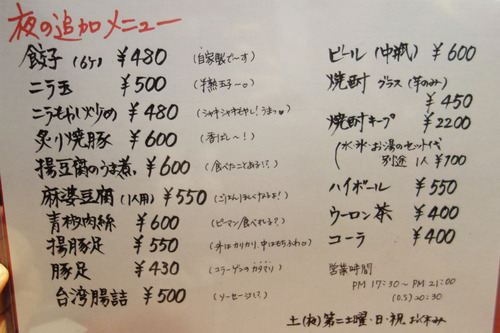 夜の追加メニュー
餃子 (6ヶ) ¥480 (自家製で〜す)
ニラ玉 ¥500 (半熟玉子〜♡)
ニラもやし炒め ¥480 (シャキシャキもやし!うまっ♥)
炙り焼豚 ¥600 (香ばし〜!)
揚豆腐のうま煮 ¥600 (食べたことある!?)
麻婆豆腐 (1人用) ¥550 (ごはんほしくなるよ!)
青椒肉絲 ¥600 (ピーマン食べれる?)
揚豚足 ¥550 (外はカリカリ、中はもちふわ♡)
豚足 ¥430 (コラーゲンのカタマリ)
台湾腸詰 ¥500 (ソーセージ!?)
ビール (中瓶) ¥600
焼酎 グラス (芋のみ)
¥450
焼酎キープ ¥2200
(水・氷・お湯のセット代
別途 1人 ¥700
ハイボール ¥550
ウーロン茶 ¥400
コーラ ¥400
営業時間
PM 17:30 〜 PM 21:00
(O.S) 20:30
土(夜) 第二土曜・日・祝 お休み